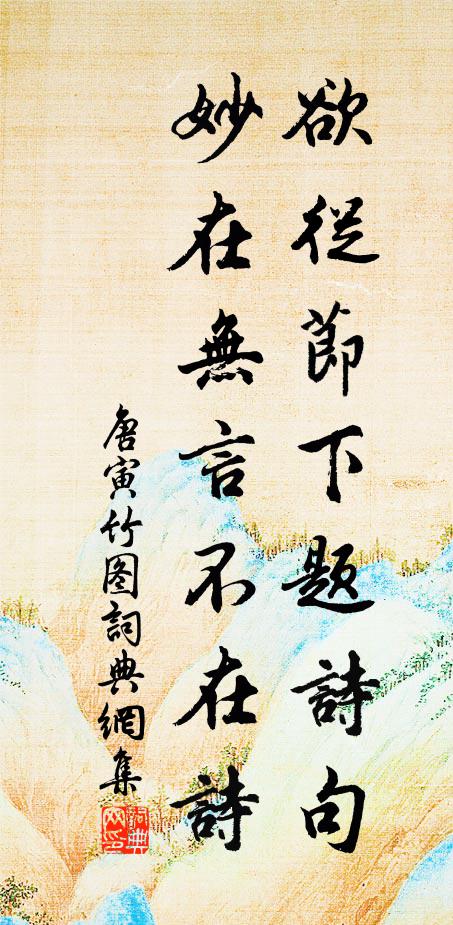 欲從節下題詩句
妙在無言不在詩
唐寅竹图詞典網集
詞典网印